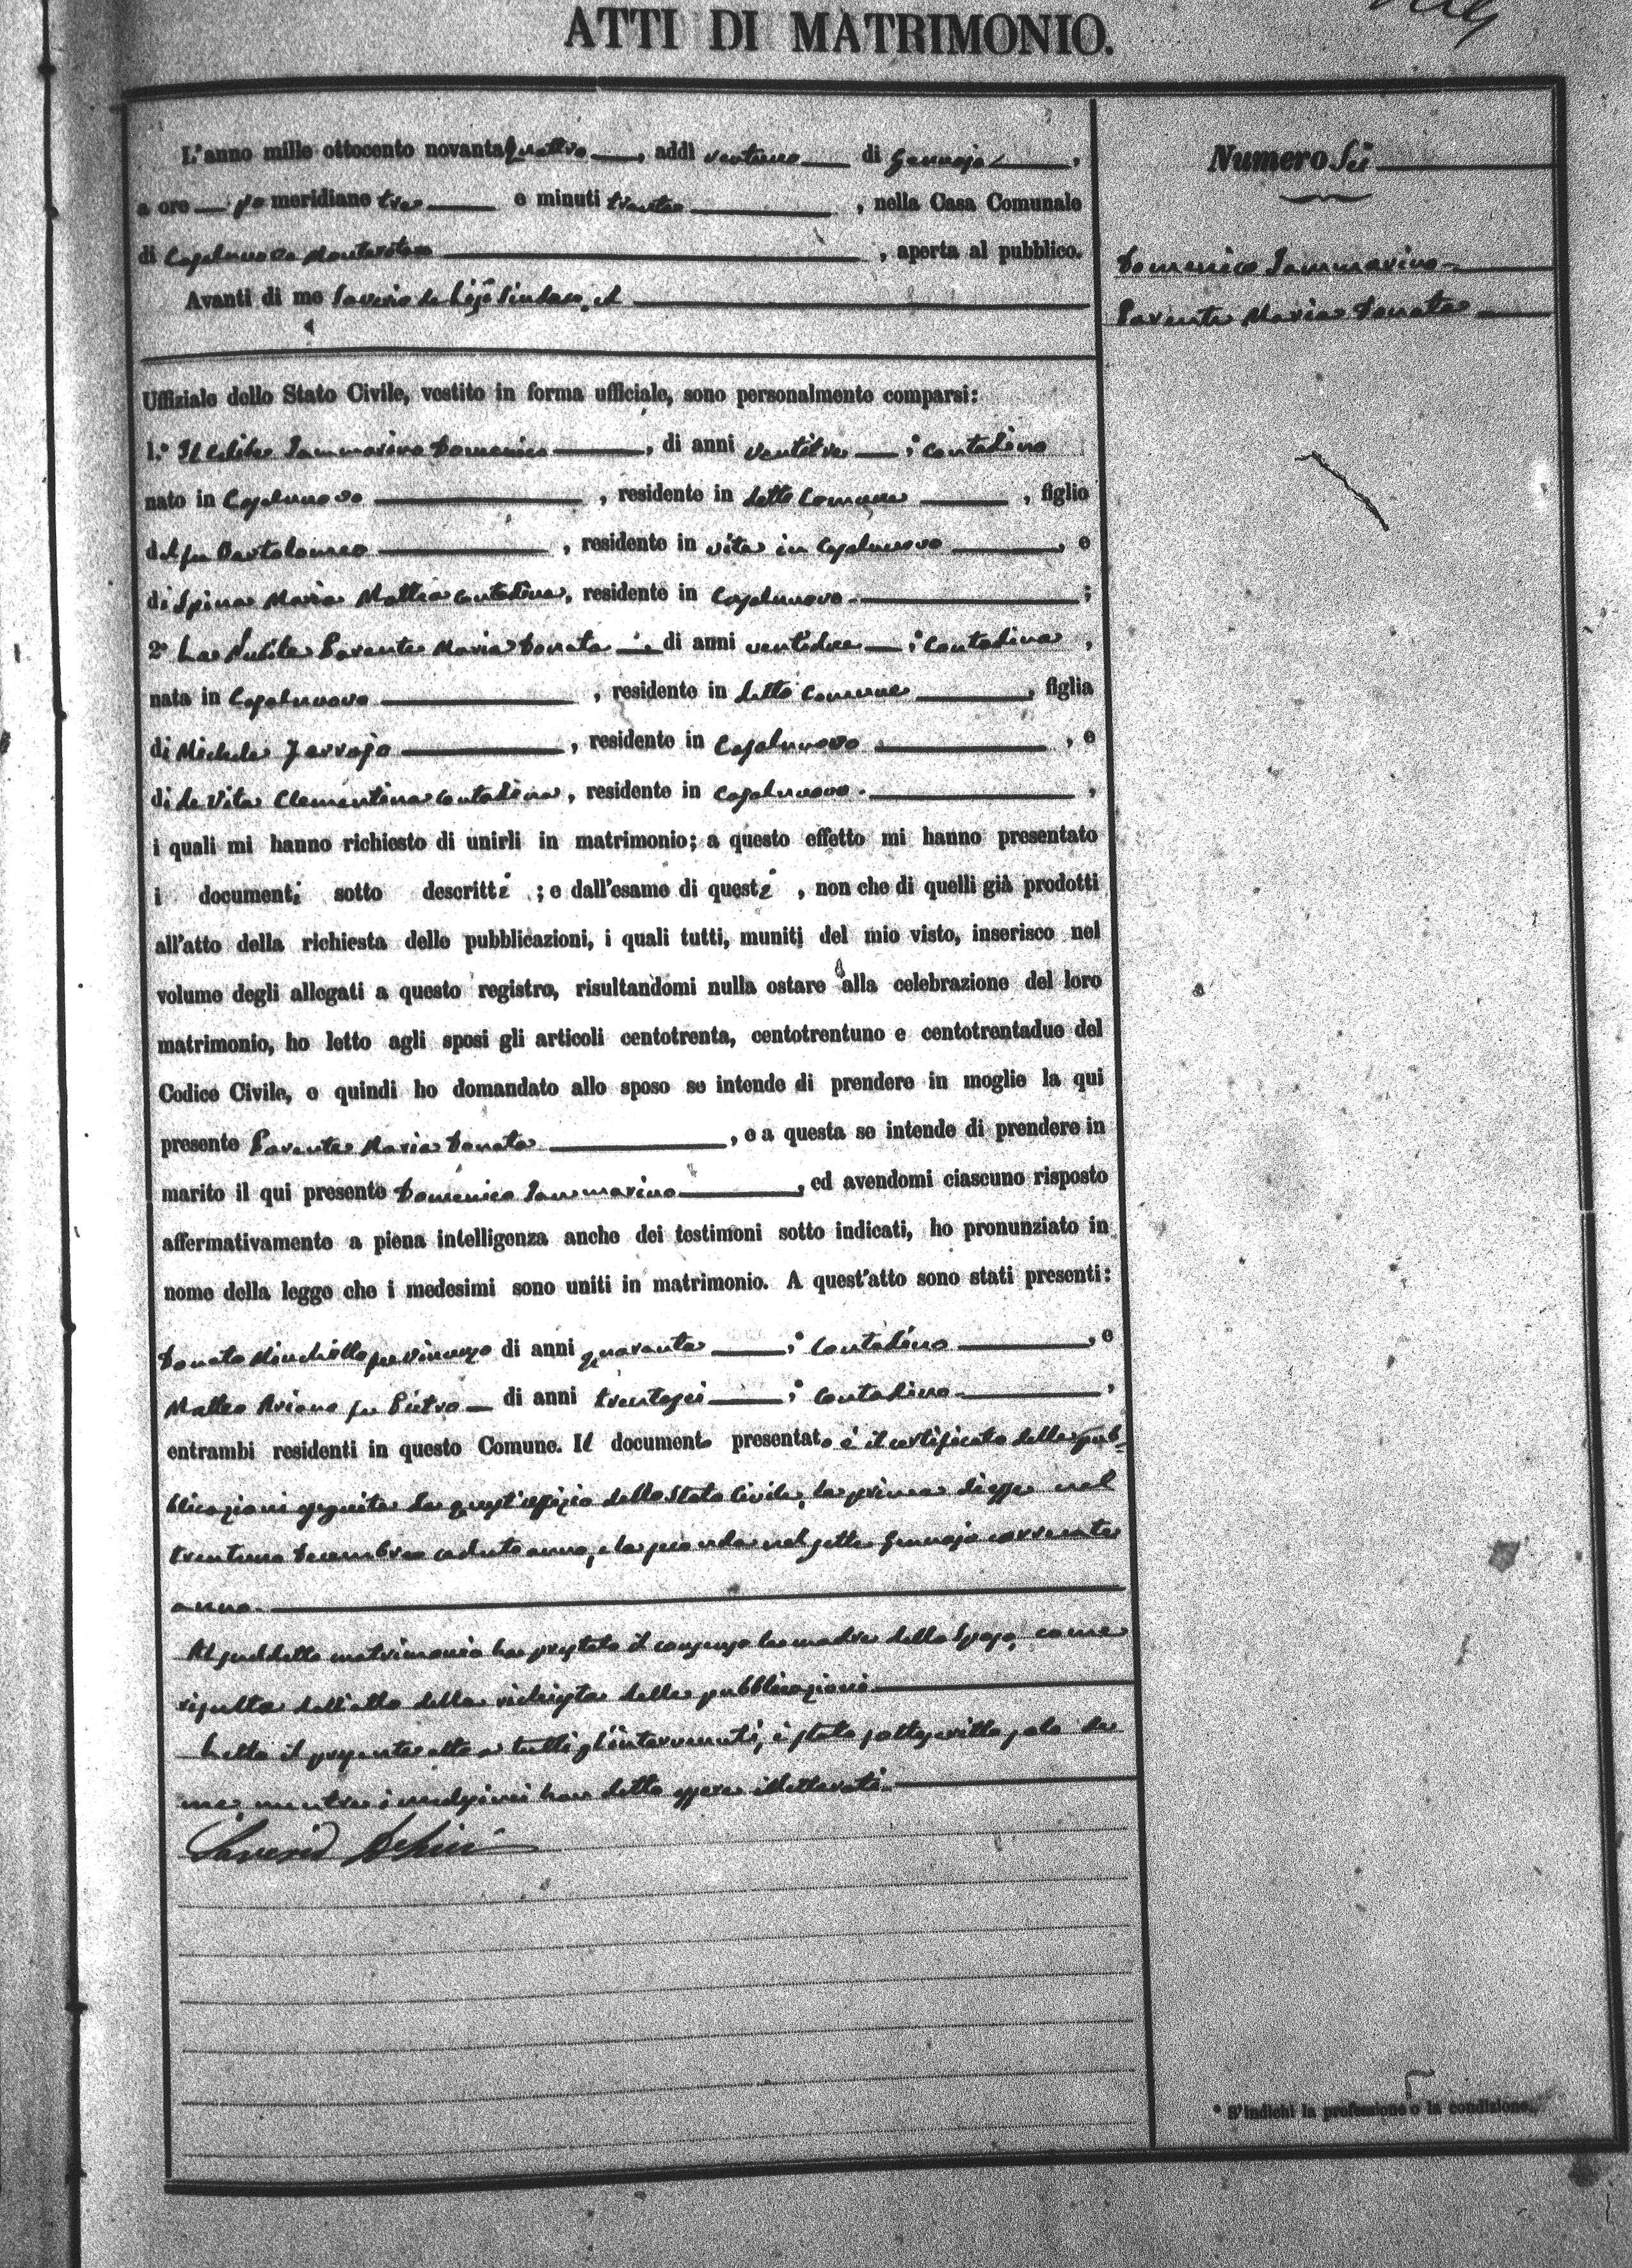 ATTI DI MATRIMONIO.
L'anno mille ottocento novantaquattro, addì ventuno di Gennajo,
a ore pomeridiane tre e minuti trenta, nella Casa Comunale
di Casalnuovo Monterotaro, aperta al pubblico.
Avanti di me Saverio de Lisi Sindaco, ed
Uffiziale dello Stato Civile, vestito in forma ufficiale, sono personalmente comparsi:
1.° Il Celibe Iammarino Domenico, di anni ventitre, contadino
nato in Casalnuovo, residente in detto Comune, figlio
del fu Bartolomeo, residente in vita in Casalnuovo, e
di Spina Maria Mattea contadina, residente in Casalnuovo.;
2° La Nubile Parente Maria Donata, di anni ventidue, contadina,
nata in Casalnuovo, residente in detto Comune, figlia
di Michele, residente in Casalnuovo, e
di de Vita Clementina contadina, residente in Casalnuovo.,
i quali mi hanno richiesto di unirli in matrimonio; a questo effetto mi hanno presentato
i documenti sotto descritti; e dall'esame di questi, non che di quelli già prodotti
all'atto della richiesta delle pubblicazioni, i quali tutti, muniti del mio visto, inserisco nel
volume degli allegati a questo registro, risultandomi nulla ostare alla celebrazione del loro
matrimonio, ho letto agli sposi gli articoli centotrenta, centotrentuno e centotrentadue del
Codice Civile, e quindi ho domandato allo sposo se intende di prendere in moglie la qui
presente Parente Maria Donata, e a questa se intende di prendere in
marito il qui presente Domenico Iammarino, ed avendomi ciascuno risposto
affermativamente a piena intelligenza anche dei testimoni sotto indicati, ho pronunziato in
nome della legge che i medesimi sono uniti in matrimonio. A quest'atto sono stati presenti:
Donato Minchillo fu Vincenzo di anni quaranta, contadino, e
Matteo Ariano fu Pietro di anni trentasei, contadino,
entrambi residenti in questo Comune. Il documento presentato è il certificato delle pub-
blicazioni eseguite da quest'ufizio dello Stato Civile, la prima diesse nel
trentuno Decembre caduto anno, e la seconda nel sette Gennajo corrente
anno.
Al suddetto matrimonio ha prestato il consenso la madre dello Sposo, come
risulta dall'atto della richiesta delle pubblicazioni
Letto il presente atto a tutti gl'intervenuti, è stato sottoscritto solo da
me, mentre i medesimi han detto essere illetterati.
Saverio
Numero Sei
Domenico Iammarino
Parente Maria Donata
* S'indichi la professione o la condizione.